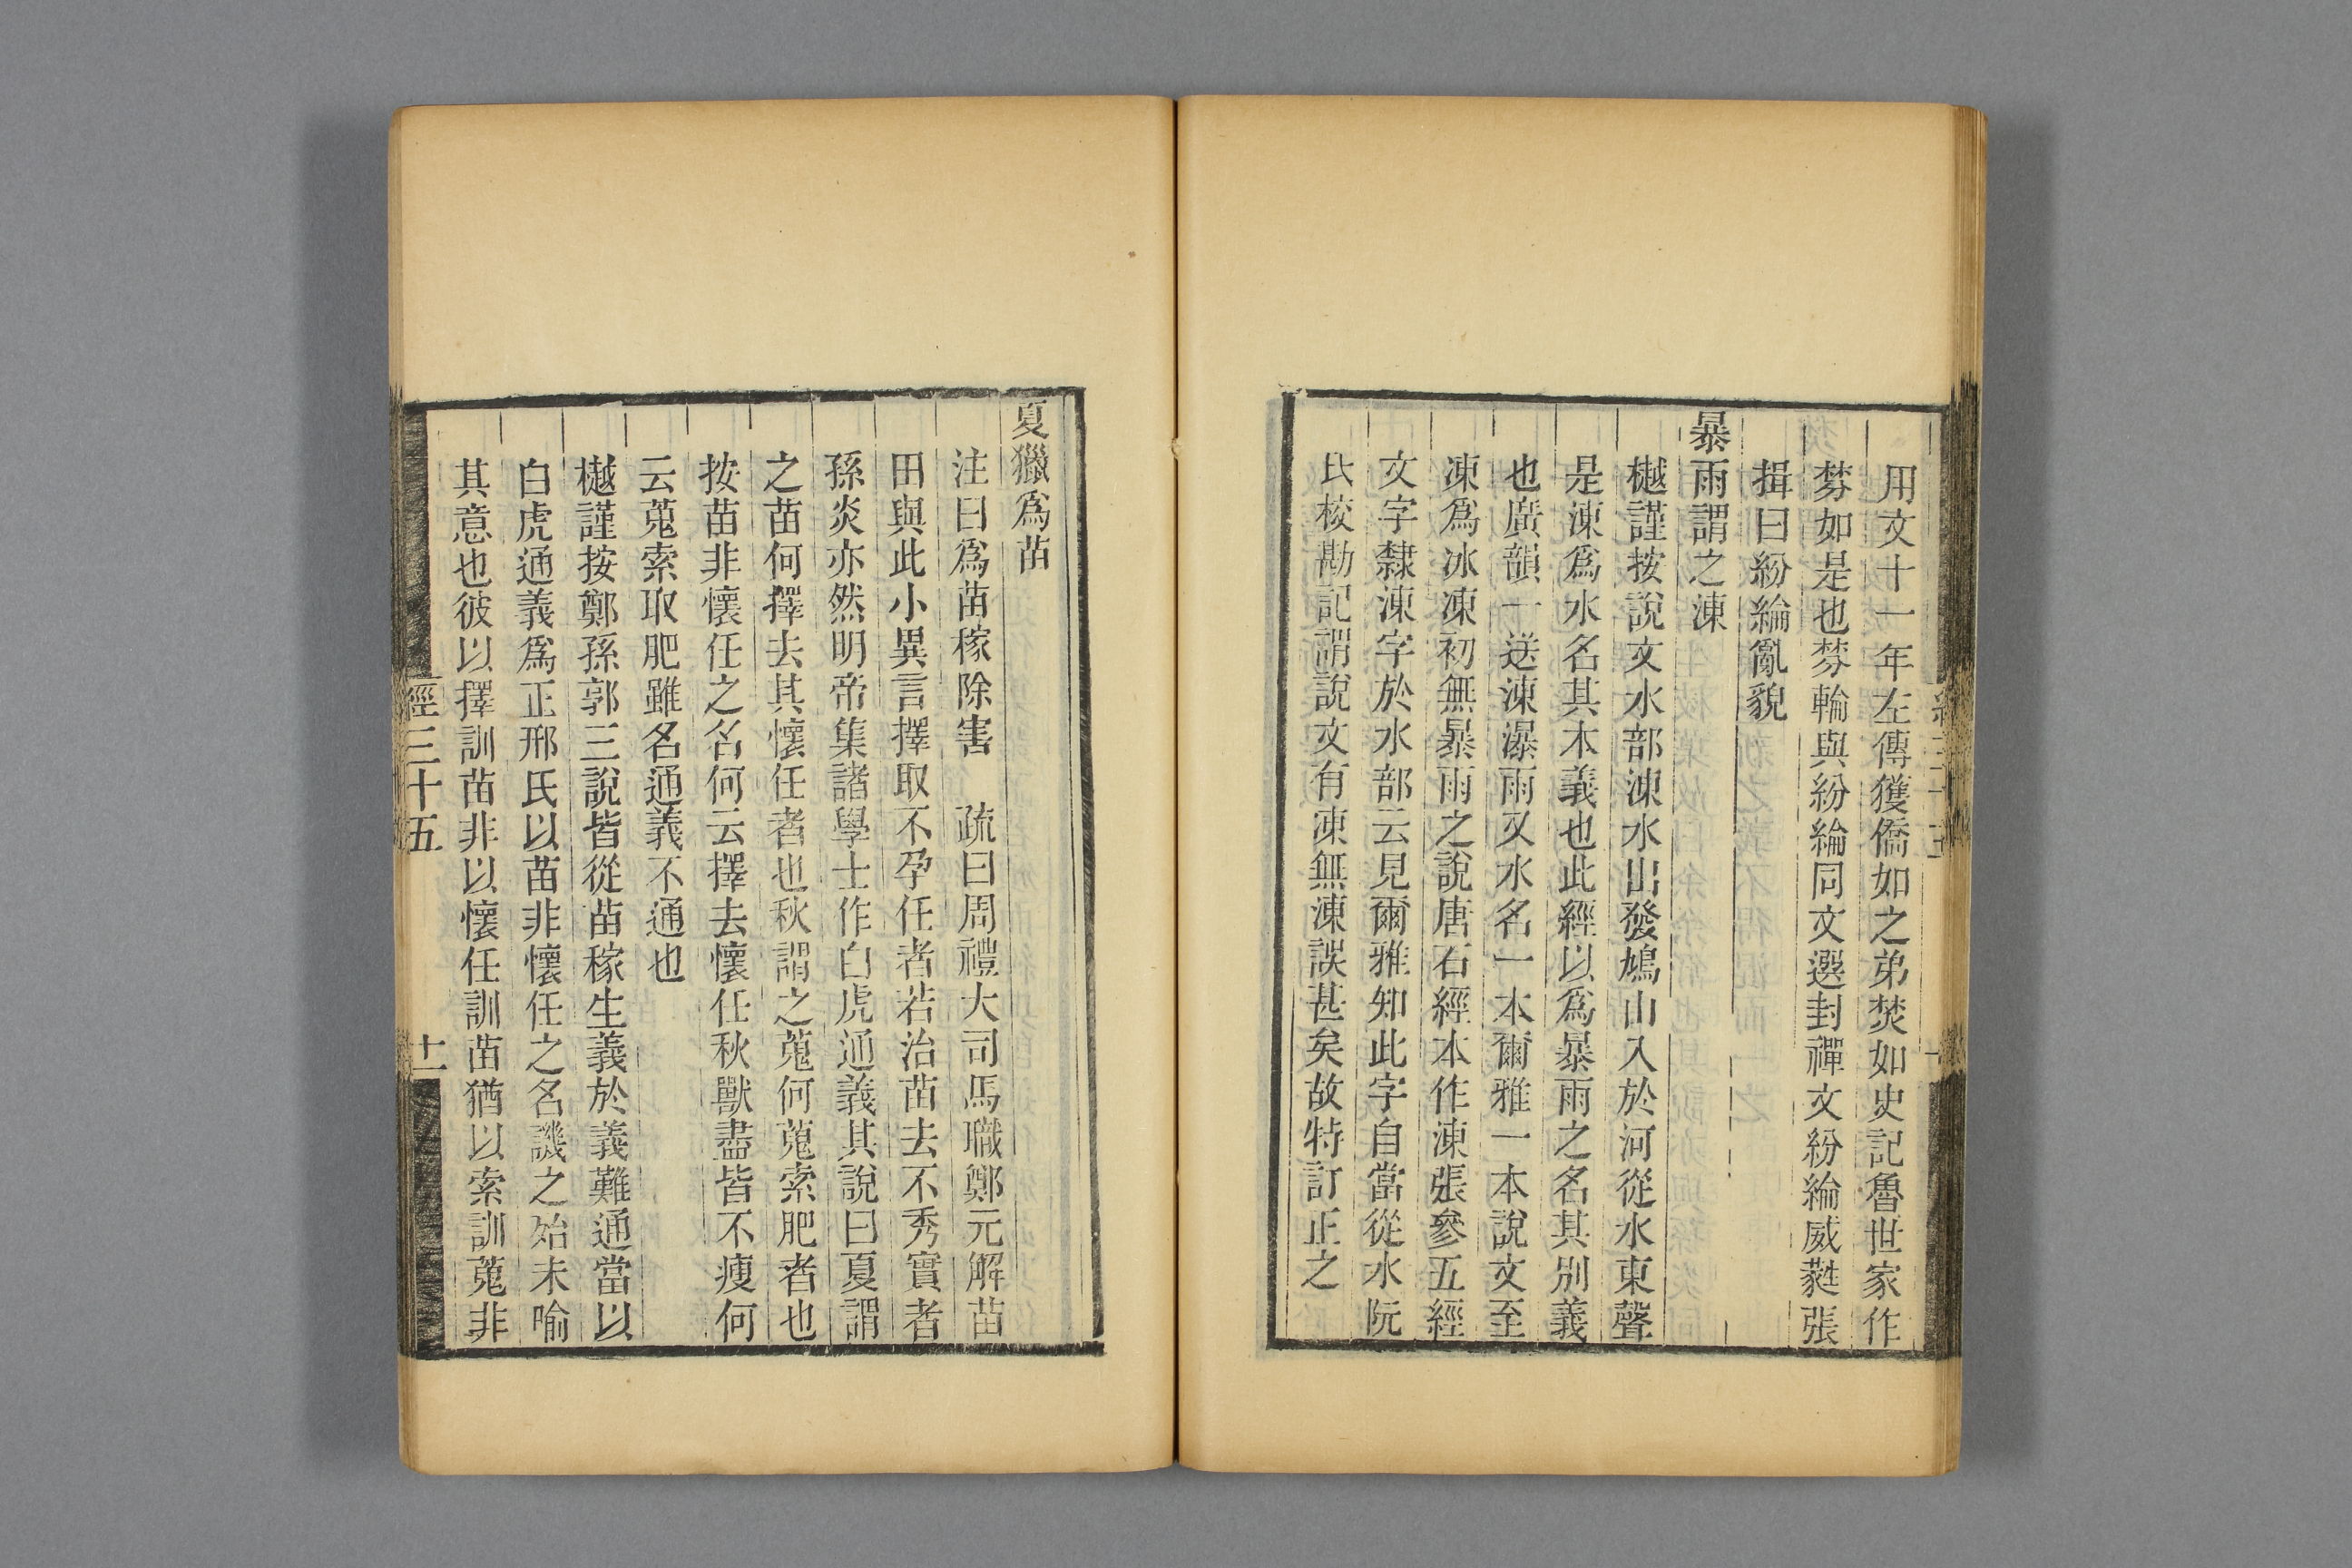 用文十一年左傳獲僑如之弟焚如史記魯世家作
棼如是也棼輪與紛綸同文選封禪文紛綸威蕤張
揖曰紛綸亂貌
暴雨謂之涷
樾謹按說文水部涷水出發鳩山入於河從水東聲
是涷爲水名其本義也此經以爲暴雨之名其別義
也廣韻一送涷瀑雨又水名一本爾雅一本說文至
凍爲冰凍初無暴雨之說唐石經本作涷張參五經
文字隸涷字於水部云見爾雅知此字自當從水阮
氏校勘記謂說文有凍無涷誤甚矣故特訂正之
夏獵爲苗
注曰爲苗稼除害　疏曰周禮大司馬職鄭元解苗
田與此小異言擇取不孕任者若治苗去不秀實者
孫炎亦然明帝集諸學士作白虎通義其說曰夏謂
之苗何擇去其懷任者也秋謂之蒐何蒐索肥者也
按苗非懷任之名何云擇去懷任秋獸盡皆不瘦何
云蒐索取肥雖名通義不通也
樾謹按鄭孫郭三說皆從苗稼生義於義難通當以
白虎通義爲正邢氏以苗非懷任之名譏之殆未喻
其意也彼以擇訓苗非以懷任訓苗猶以索訓蒐非
經三十五
十一